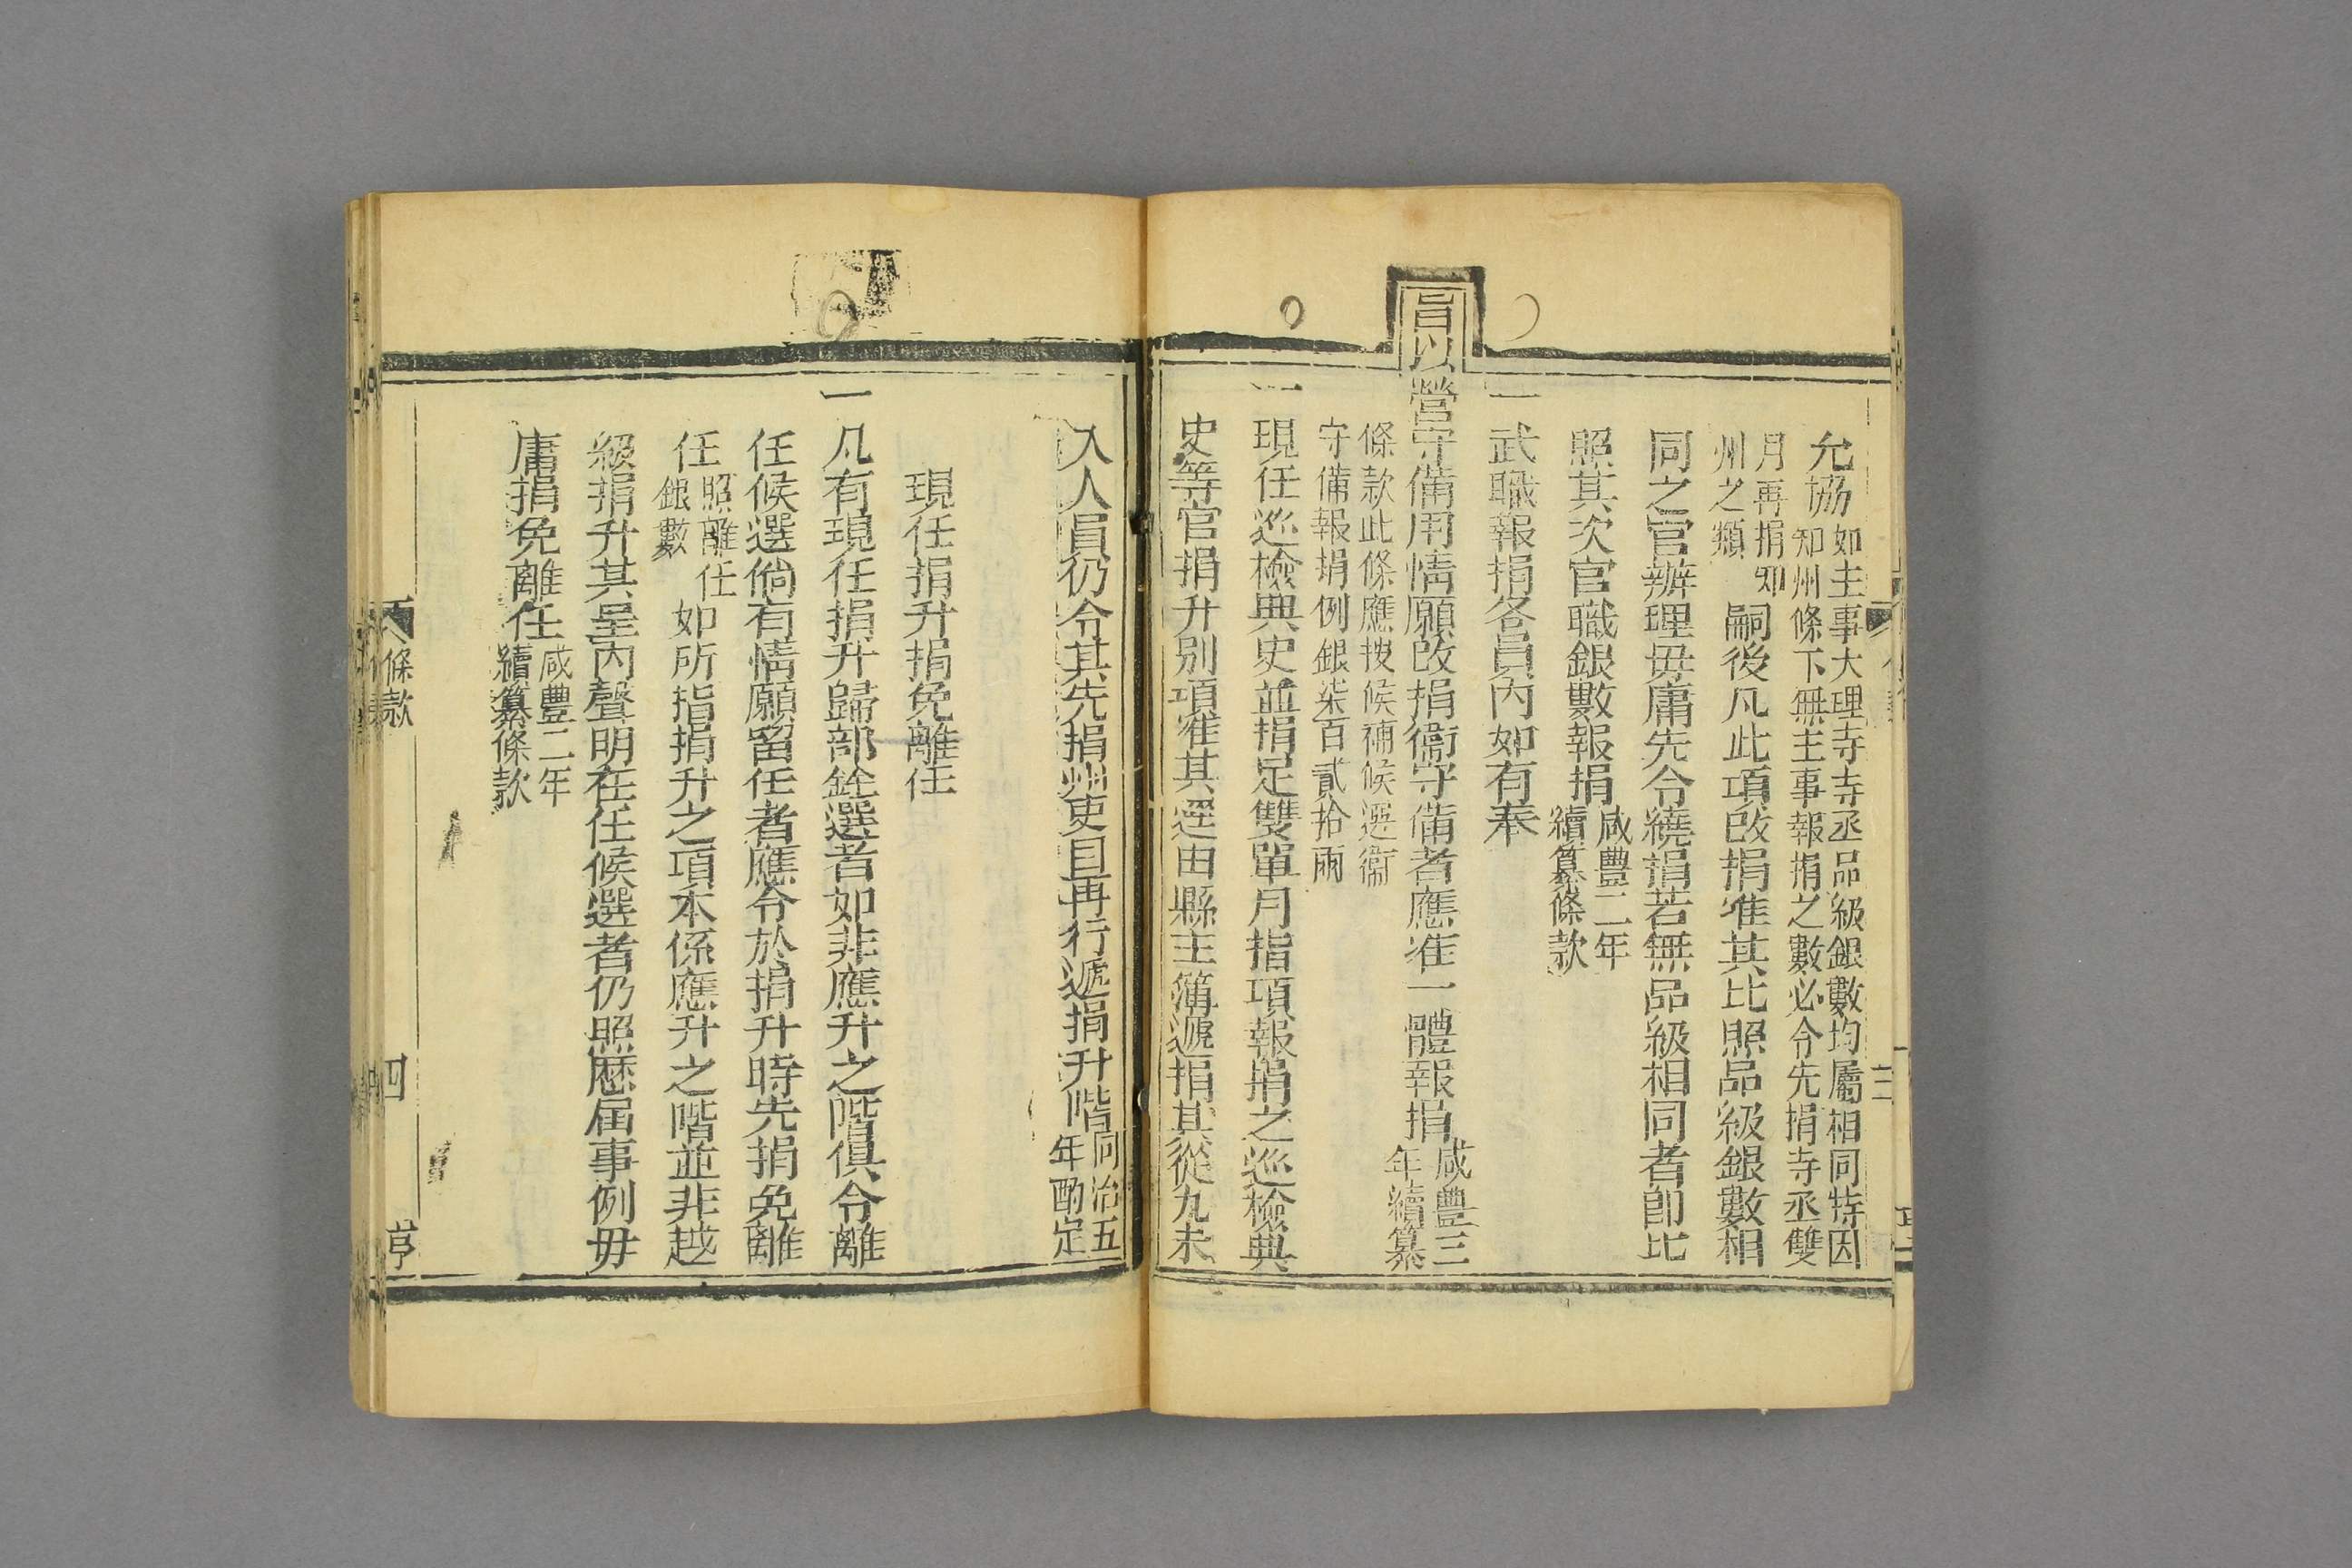 允協如主事大理寺寺丞品級銀數均屬相同特因
知州條下無主事報捐之數必令先捐寺丞雙
月再捐知
州之類嗣後凡此項改捐准其比照品級銀數相
同之官辦理毋庸先令繞捐若無品級相同者卽比
照其次官職銀數報捐咸豐二年
續纂條款
一武職報捐各員內如有奉
旨以營守備用情願改捐衞守備者應准一體報捐咸豐三
年續纂
條款此條應按候補候選衞
守備報捐例銀柒百貳拾兩
一現任巡檢典史並捐足雙單月指項報捐之巡檢典
史等官捐升別項准其逕由縣主簿遞捐其從九未
入人員仍令其先捐州吏目再行遞捐升階同治五
年酌定
現任捐升捐免離任
一凡有現任捐升歸部銓選者如非應升之階俱令離
任候選倘有情願留任者應令於捐升時先捐免離
任照離任
銀數如所指捐升之項本係應升之階並非越
級捐升其呈內聲明在任候選者仍照歷屆事例毋
庸捐免離任咸豐二年
續纂條款
條款
四